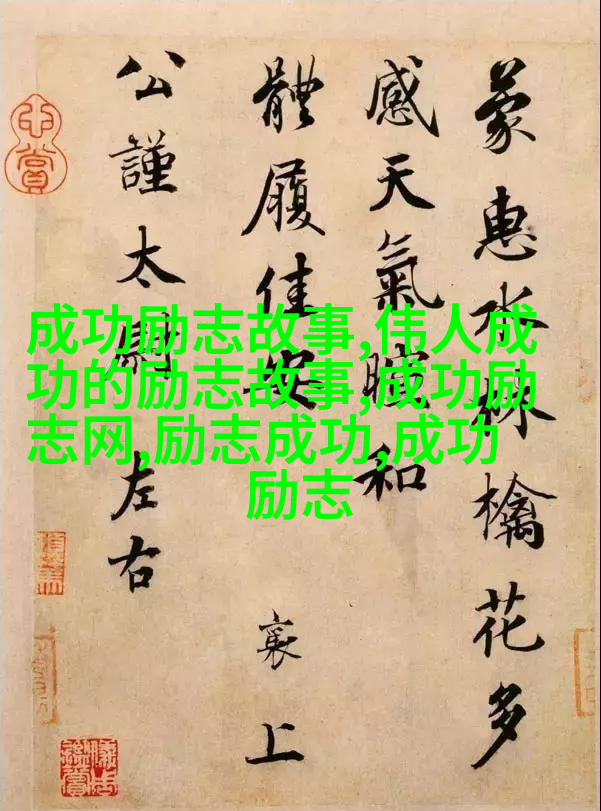 蒙惠水林檎花多
感天氣暄和
體履佳安
襄上
公謹太尉左右
成功励志故事,伟人成
功的励志故事,成功励
志网,励志成功,成功
励志